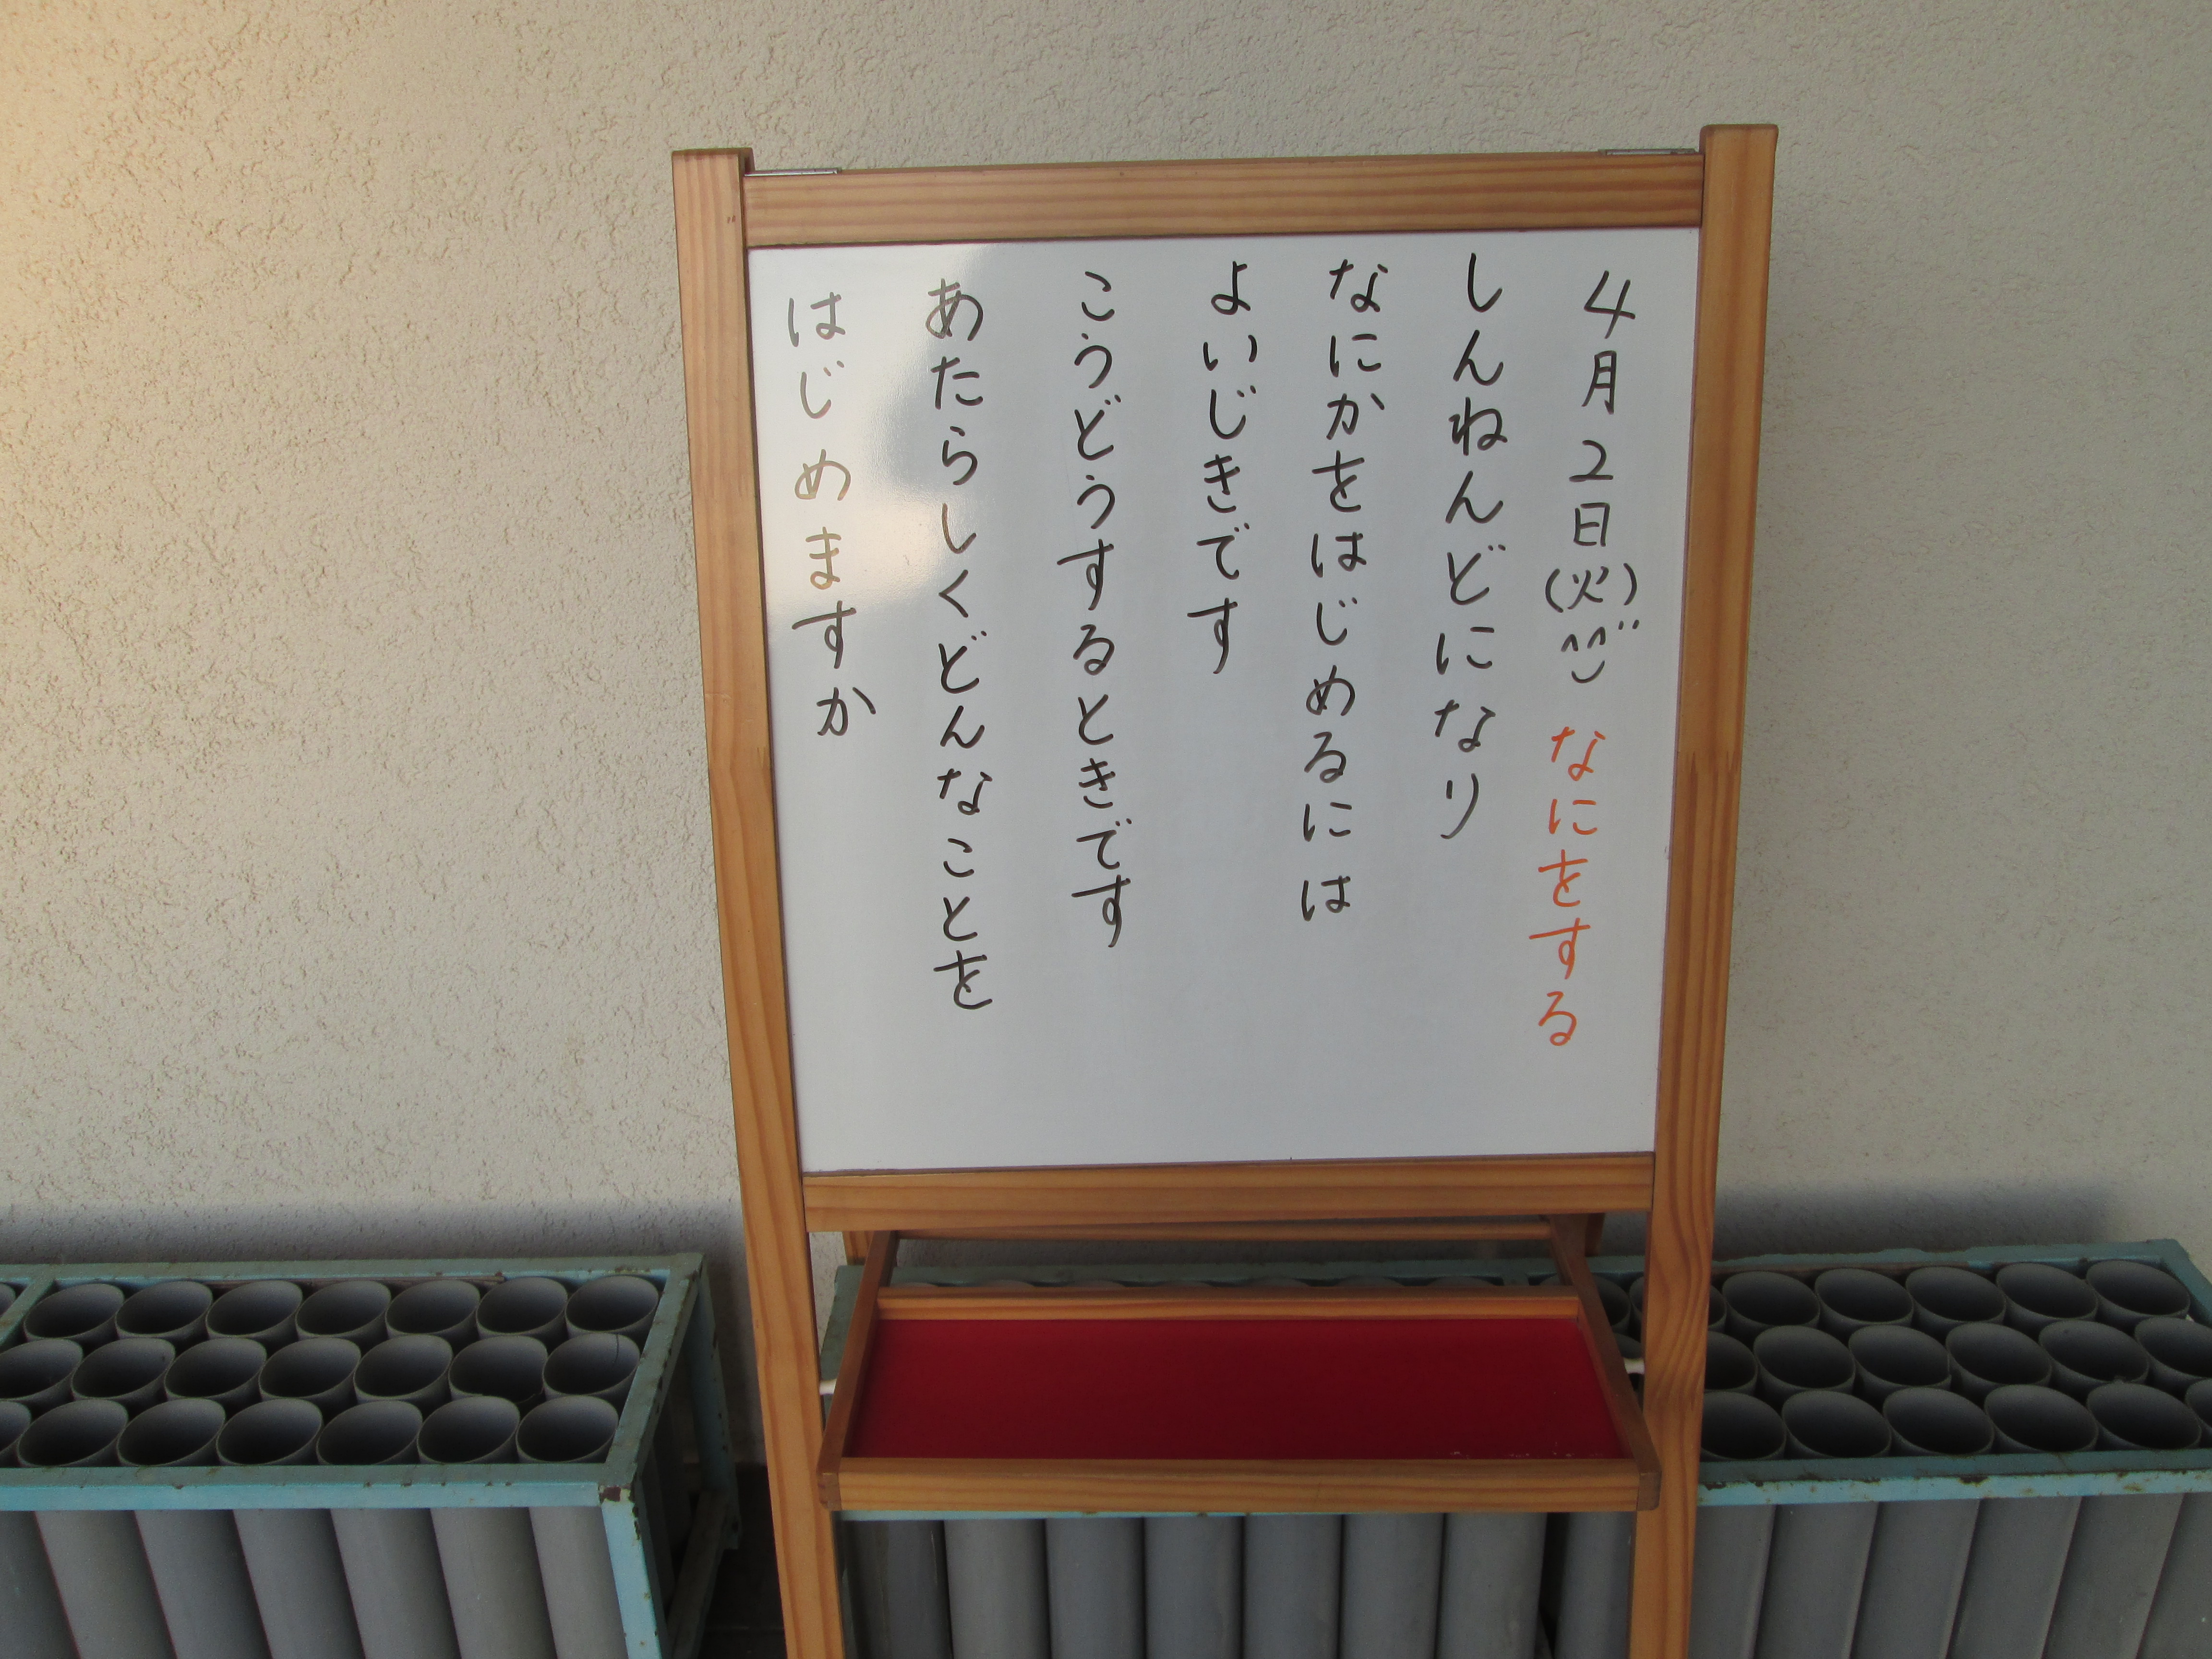 4月2日(火)^^;; なにをする
しんねんどになり
なにかをはじめるには
よいじきです
こうどうするときです
あたらしくどんなことを
はじめますか